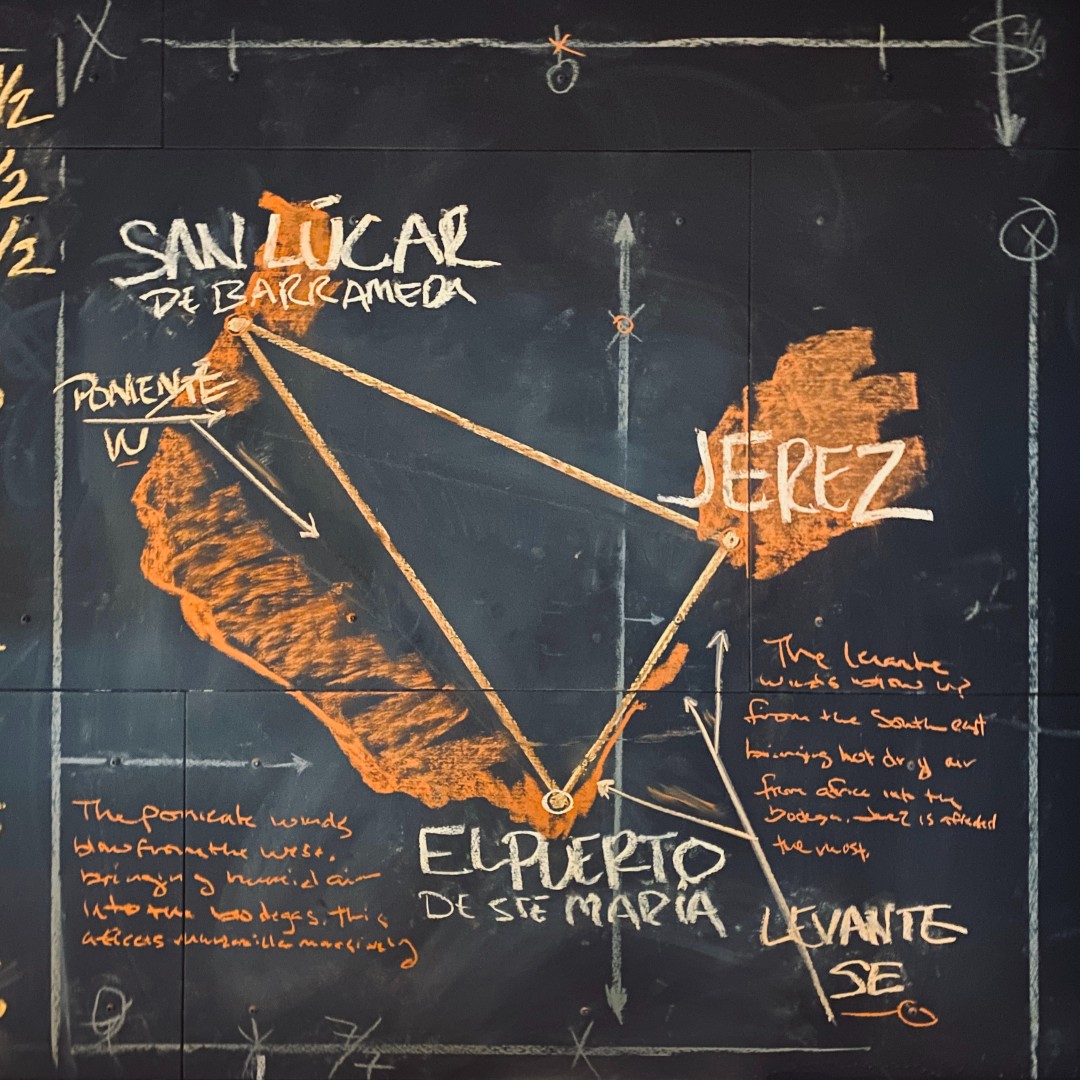 1/2
1/2
1/2
SAN LÚCAR
DE BARRAMEDA
PONIENTE
W
JEREZ
The levante
winds blow in
from the South east
bringing hot dry air
from africa into the
bodega. Jerez is affected
the most.
The poniente winds
blow from the west.
bringing humid air
into the bodegas. this
affects manzanilla massively
EL PUERTO
DE STE MARÍA
LEVANTE
SE